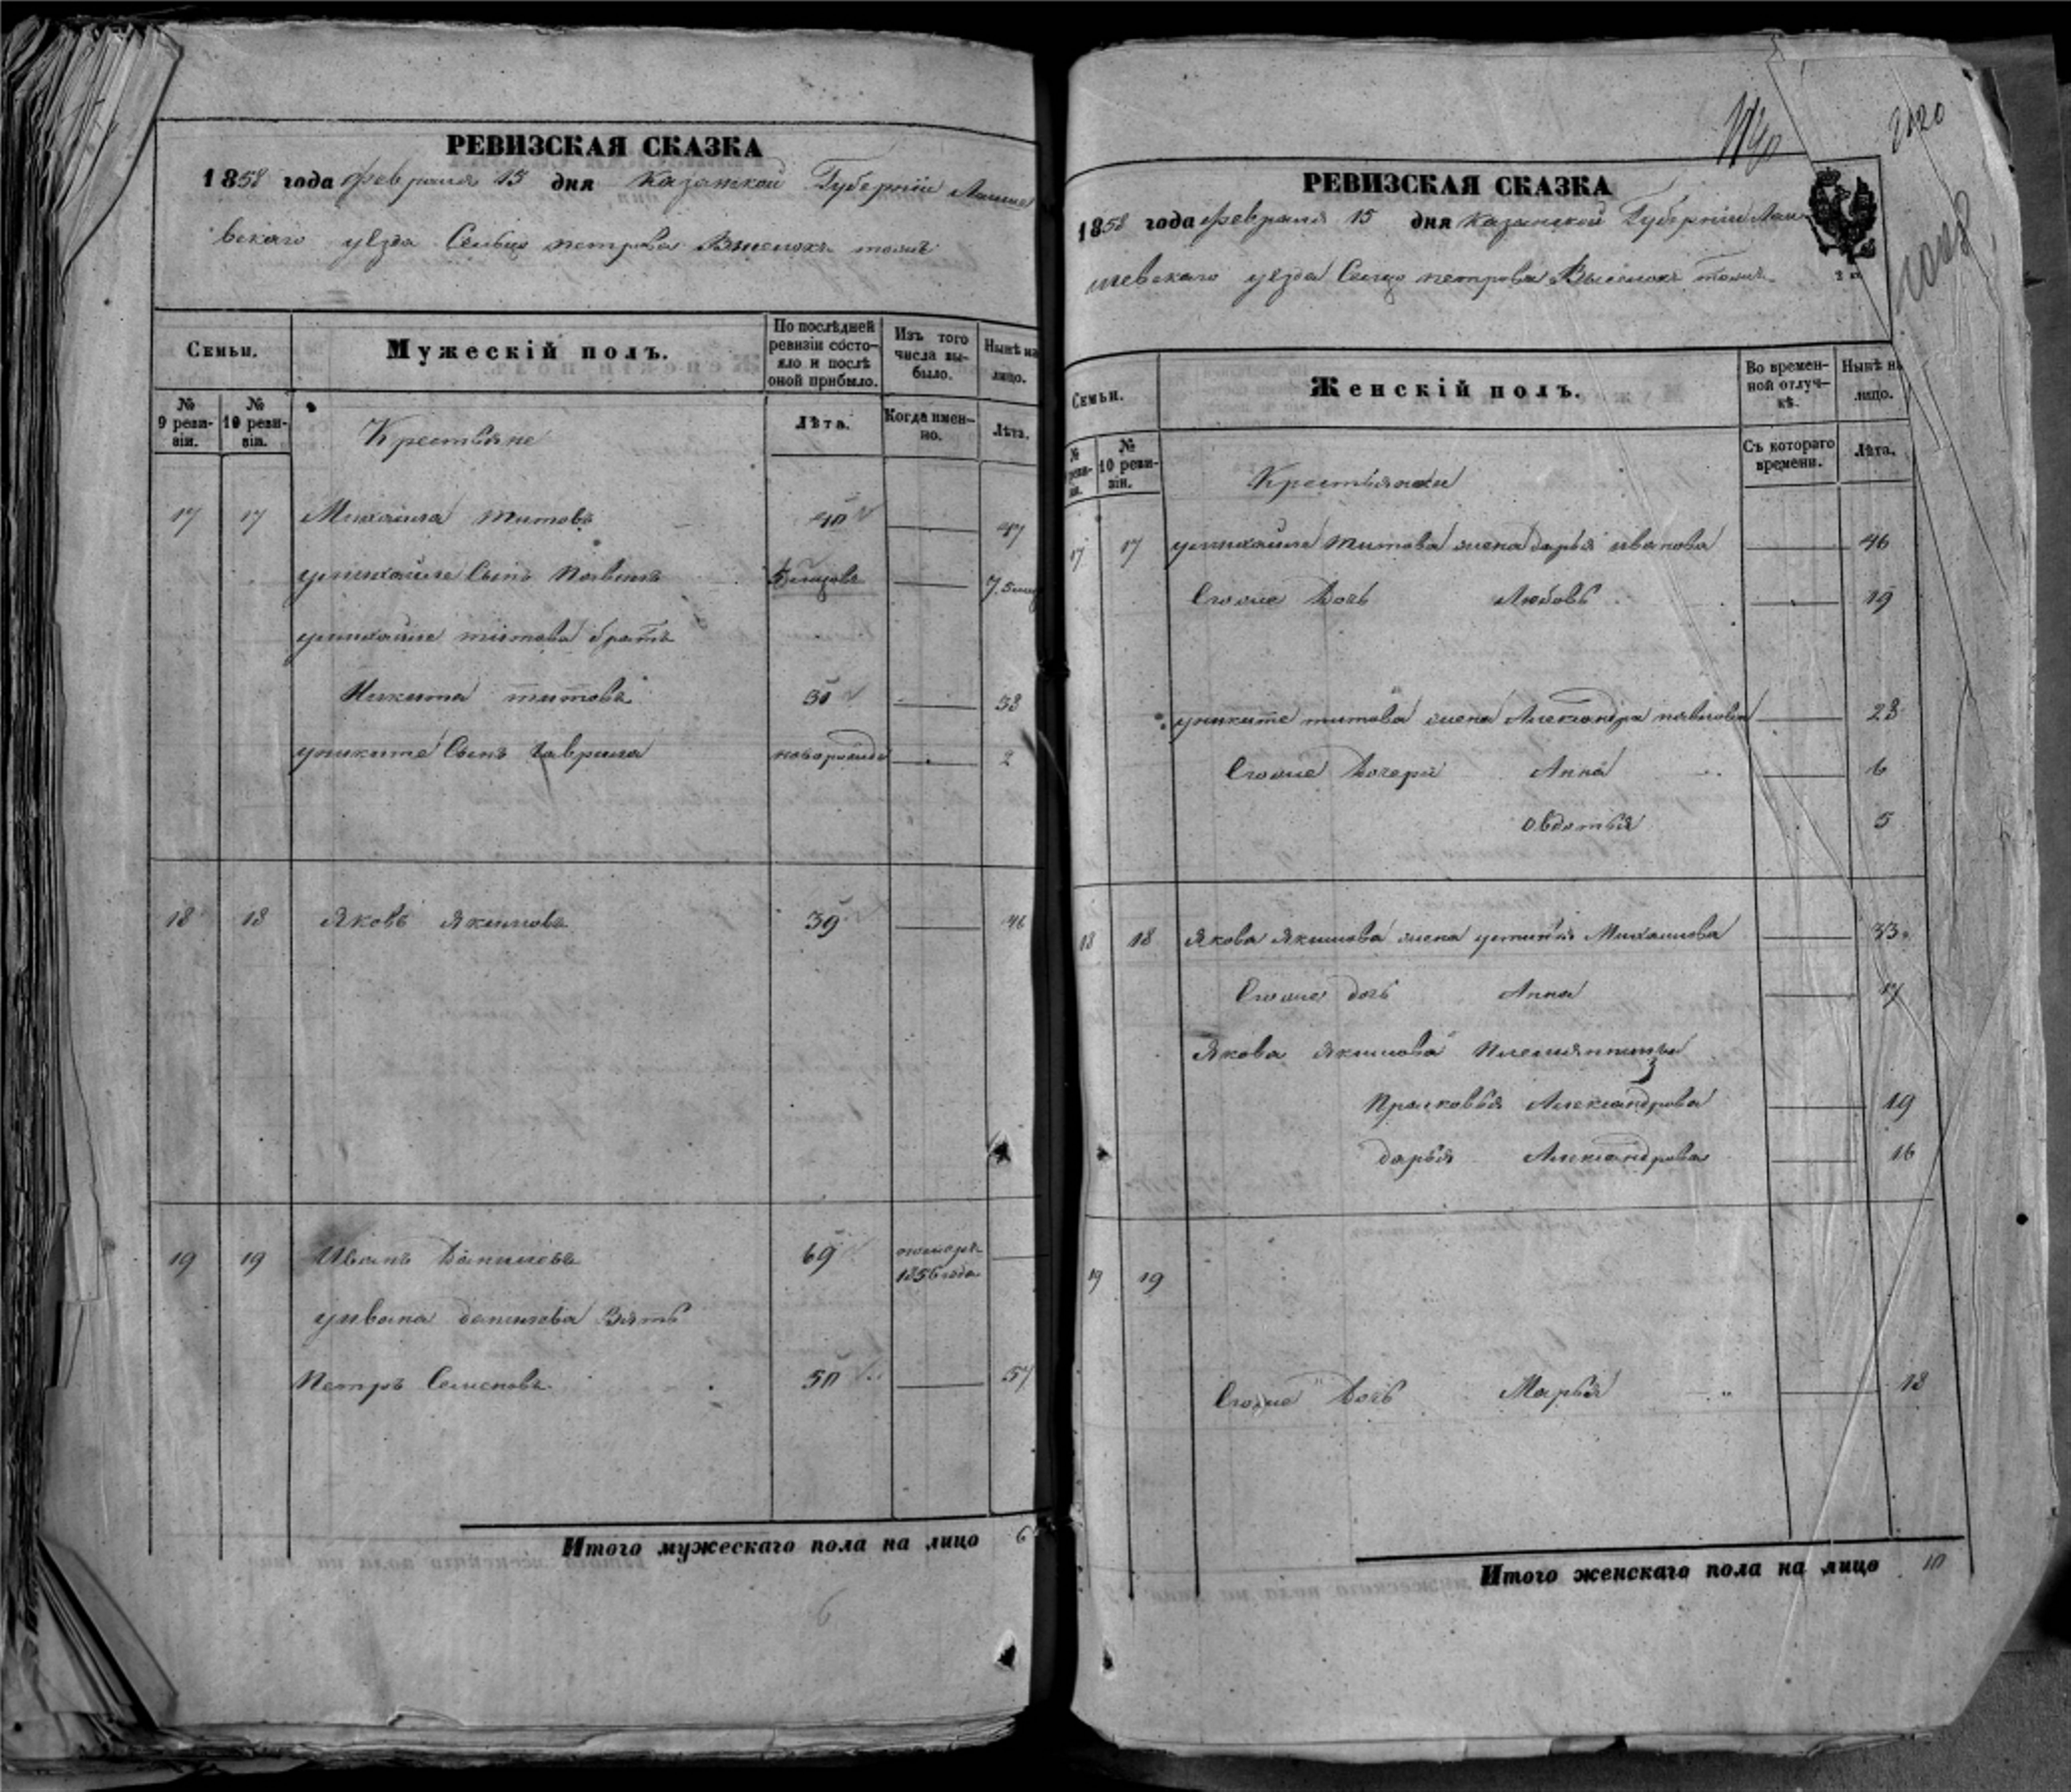 РЕВИЗСКАЯ СКАЗКА
1858 года февраля 15 дня Казанской Губернии Лаише
вскаго уезда Сельцо петрова Выселокъ тожъ
Семьи.
Мужескій полъ.
По послѣдней ревизіи состо-яло и послѣ оной прибыло.
Изъ того числа вы-было.
Нынѣ на лицо.
№ 9 реви-зіи.
№ 10 реви-зіи.
Крестьяне
Лѣта.
Когда имен-но.
Лѣта.
17 17 Михайла титовъ 40 47
умихайле Сынъ павелъ 7.5
умихайле титова братъ
Никита титовъ
униките Сынъ Гаврила новорожде 2
18 18 Яковъ Якимовъ 39 46
19 19 Иванъ Даниловъ 69
1856 года
уивана данилова Зять
Петръ Семеновъ 50 57
Итого мужескаго пола на лицо 6
6
2120
РЕВИЗСКАЯ СКАЗКА
1858 года февраля 15 дня казанской Губернии Лаи
шевскаго уезда Сельцо петрова Выселокъ тожъ
Семьи.
Женскій полъ.
Во времен-ной отлуч-кѣ.
Нынѣ на лицо.
№ реви-зіи.
№ 10 реви-зіи.
Крестьянки
Съ котораго времени.
Лѣта.
17 17 умихайле титова жена дарья иванова 46
Егоже Дочь Любовь 19
униките титова жена Александра павлова 28
Егоже Дочери Анна 6
Овдотья 5
18 18 Якова Якимова жена устинья Михайлова 33
Егоже дочь Анна 17
Якова Якимова племянницы
Прасковья Александрова 19
дарья Александрова 16
19 19
Егоже Дочь Марья 18
Итого женскаго пола на лицо 10